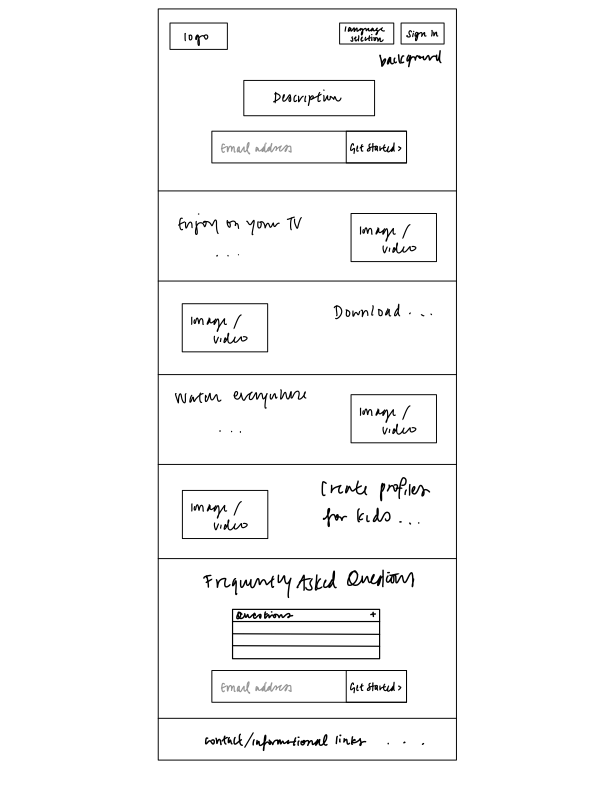 logo
language
selection
Sign In
background
Description
Email address
Get Started >
Enjoy on your TV
...
Image /
video
Image /
video
Download ...
Watch everywhere
...
Image /
video
Image /
video
Create profiles
for kids ...
Frequently Asked Questions
Questions +
Email address
Get Started >
contact/informational links ...